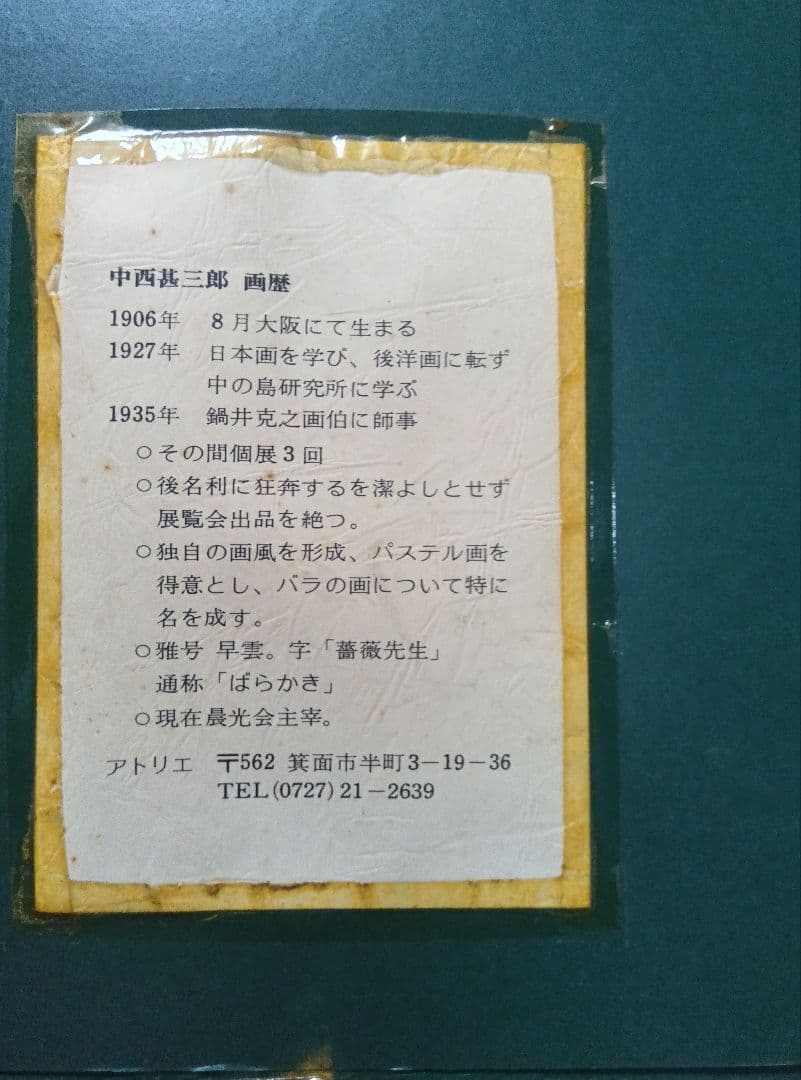 中西甚三郎 画歴
1906年 8月大阪にて生まる
1927年 日本画を学び、後洋画に転ず
中の島研究所に学ぶ
1935年 鍋井克之画伯に師事
○その間個展3回
○後名利に狂奔するを潔よしとせず
展覧会出品を絶つ。
○独自の画風を形成、パステル画を
得意とし、バラの画について特に
名を成す。
○雅号 早雲。字「薔薇先生」
通称「ばらかき」
○現在晨光会主宰。
アトリエ 〒562 箕面市半町3−19−36
TEL(0727)21−2639